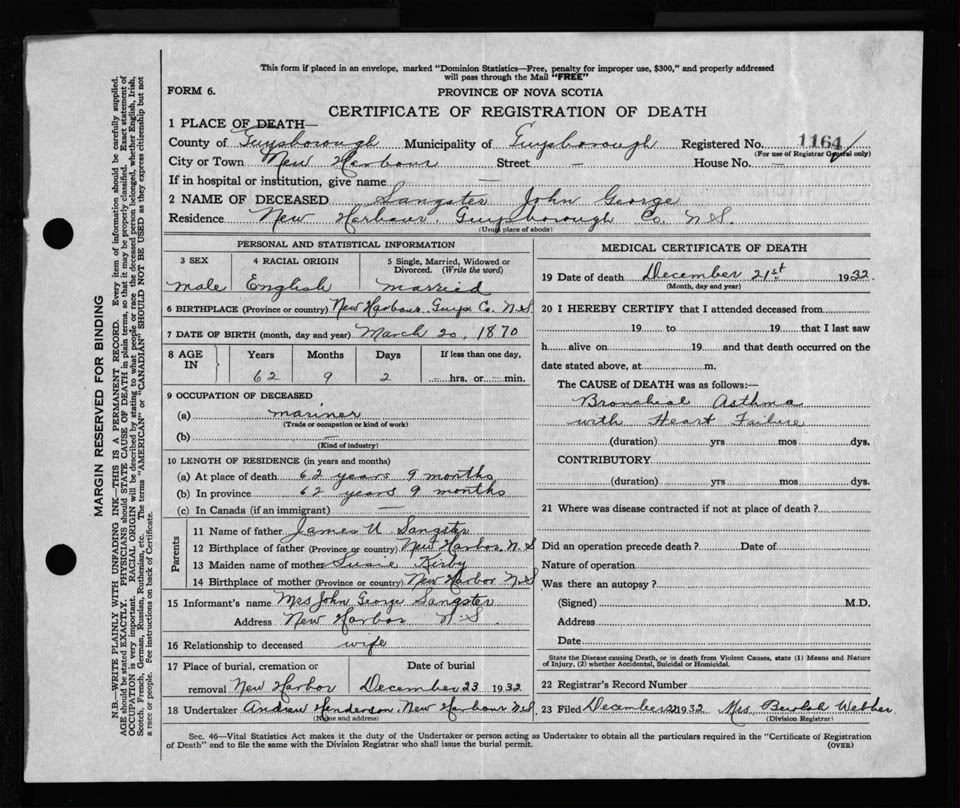 This form if placed in an envelope, marked "Dominion Statistics—Free, penalty for improper use, $300," and properly addressed
will pass through the Mail "FREE"
FORM 6. PROVINCE OF NOVA SCOTIA
CERTIFICATE OF REGISTRATION OF DEATH
1 PLACE OF DEATH—
County of Guysborough Municipality of Guysborough Registered No. 1164
(For use of Registrar General only)
City or Town New Harbour Street – House No. –
If in hospital or institution, give name –
2 NAME OF DECEASED Sangster John George
Residence New Harbour, Guysborough Co. N.S.
(Usual place of abode)
PERSONAL AND STATISTICAL INFORMATION
3 SEX 4 RACIAL ORIGIN 5 Single, Married, Widowed or Divorced. (Write the word)
male English married
6 BIRTHPLACE (Province or country) New Harbour. Guys. Co. N.S
7 DATE OF BIRTH (month, day and year) March 20, 1870
8 AGE IN Years Months Days If less than one day,
62 9 2 – hrs. or – min.
9 OCCUPATION OF DECEASED
(a) mariner
(Trade or occupation or kind of work)
(b) –
(Kind of industry)
10 LENGTH OF RESIDENCE (in years and months)
(a) At place of death 62 years 9 months
(b) In province 62 years 9 months
(c) In Canada (if an immigrant) –
Parents
11 Name of father James W Sangster
12 Birthplace of father (Province or country) New Harbor N.S
13 Maiden name of mother Kirby
14 Birthplace of mother (Province or country) New Harbor N.S
15 Informant's name Mrs John George Sangster
Address New Harbor N.S.
16 Relationship to deceased wife
17 Place of burial, cremation or removal New Harbor Date of burial December 23 1932
18 Undertaker Andrew Henderson, New Harbour N.S
(Name and address)
MEDICAL CERTIFICATE OF DEATH
19 Date of death December 21st 1932.
(Month, day and year)
20 I HEREBY CERTIFY that I attended deceased from
19 to 19 that I last saw
h alive on 19 and that death occurred on the
date stated above, at m.
The CAUSE of DEATH was as follows:—
Bronchial Asthma
with Heart Failure
(duration) yrs mos dys.
CONTRIBUTORY
(duration) yrs mos dys.
21 Where was disease contracted if not at place of death ?
Did an operation precede death ? Date of
Nature of operation
Was there an autopsy ?
(Signed) M.D.
Address
Date
State the Disease causing Death, or in death from Violent Causes, state (1) Means and Nature
of Injury, (2) whether Accidental, Suicidal or Homicidal.
22 Registrar's Record Number
23 Filed December 1932 Mrs Webber
(Division Registrar)
Sec. 46—Vital Statistics Act makes it the duty of the Undertaker or person acting as Undertaker to obtain all the particulars required in the "Certificate of Registration
of Death" and to file the same with the Division Registrar who shall issue the burial permit. (OVER)
MARGIN RESERVED FOR BINDING
N.B.—WRITE PLAINLY WITH UNFADING INK—THIS IS A PERMANENT RECORD. Every item of information should be carefully supplied.
AGE should be stated EXACTLY. PHYSICIANS should STATE CAUSE OF DEATH in plain terms, so that it may be properly classified. Exact statement of
OCCUPATION is very important. RACIAL ORIGIN will be described by stating to what people or race the deceased person belonged, whether English, Irish,
Scotch, French, German, Russian, Ruthenian, etc. The terms "AMERICAN" or "CANADIAN" SHOULD NOT BE USED as they express citizenship but not
a race or people. See instructions on back of Certificate.